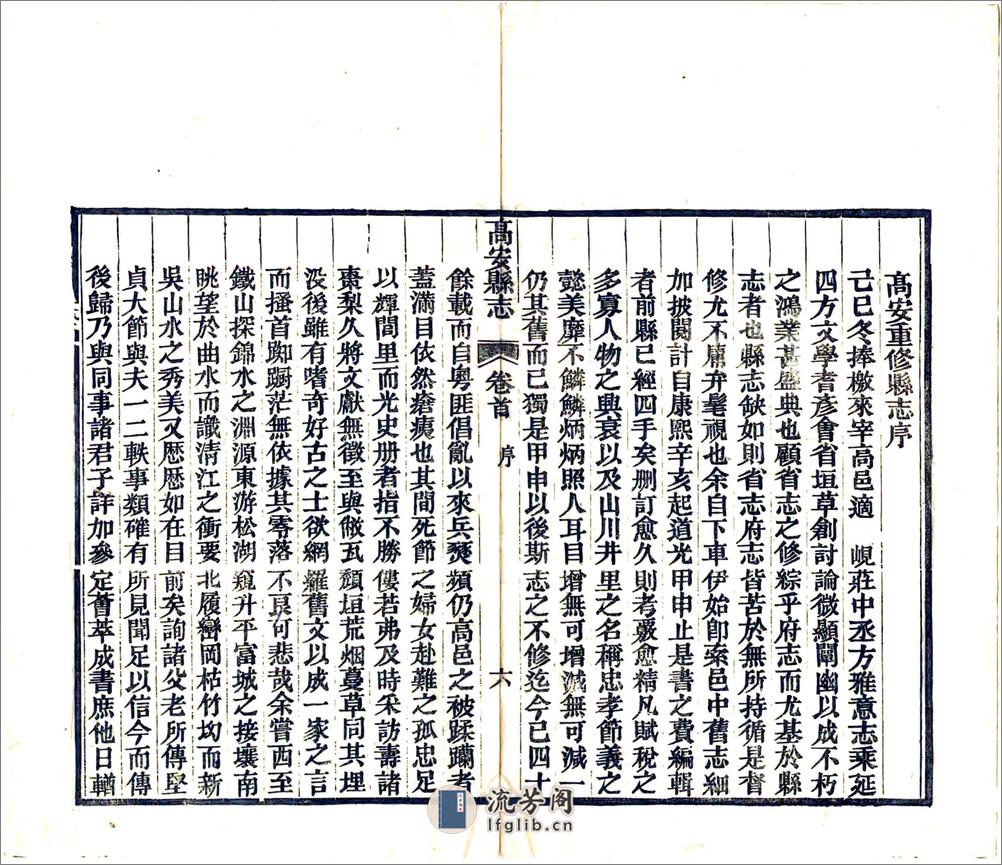 高安重修縣志序
己巳冬捧檄來宰高邑適 峴莊中丞方雅意志乘延
四方文學耆彥會省垣草創討論微顯闡幽以成不朽
之鴻業甚盛典也顧省志之修綜乎府志而尤基於縣
志者也縣志缺如則省志府志皆苦於無所持循是督
修尤不庸弁髦視也余自下車伊始卽索邑中舊志細
加披閱計自康熙辛亥起道光甲申止是書之費編輯
者前縣已經四手矣刪訂愈久則考覈愈精凡賦稅之
多寡人物之興衰以及山川井里之名稱忠孝節義之
懿美靡不鱗鱗炳炳照人耳目增無可增減無可減一
仍其舊而已獨是甲申以後斯志之不修迄今已四十
高安縣志 卷首 序 六
餘載而自粵匪倡亂以來兵燹頻仍高邑之被蹂躪者
蓋滿目依然瘡痍也其間死節之婦女赴難之孤忠足
以輝閭里而光史册者指不勝僂若弗及時采訪壽諸
棗梨久將文獻無徵至與敝瓦頹垣荒烟蔓草同其埋
没後雖有嗜奇好古之士欲網羅舊文以成一家之言
而搔首踟躕茫無依據其零落不良可悲哉余嘗西至
鐵山探錦水之淵源東游松湖窺升平富城之接壤南
眺望於曲水而識清江之衝要北履巒岡枯竹坳而新
吳山水之秀美又歷歷如在目前矣詢諸父老所傳堅
貞大節與夫一二軼事類確有所見聞足以信今而傳
後歸乃與同事諸君子詳加參定薈萃成書庶他日輶
流芳阁
lfglib.cn